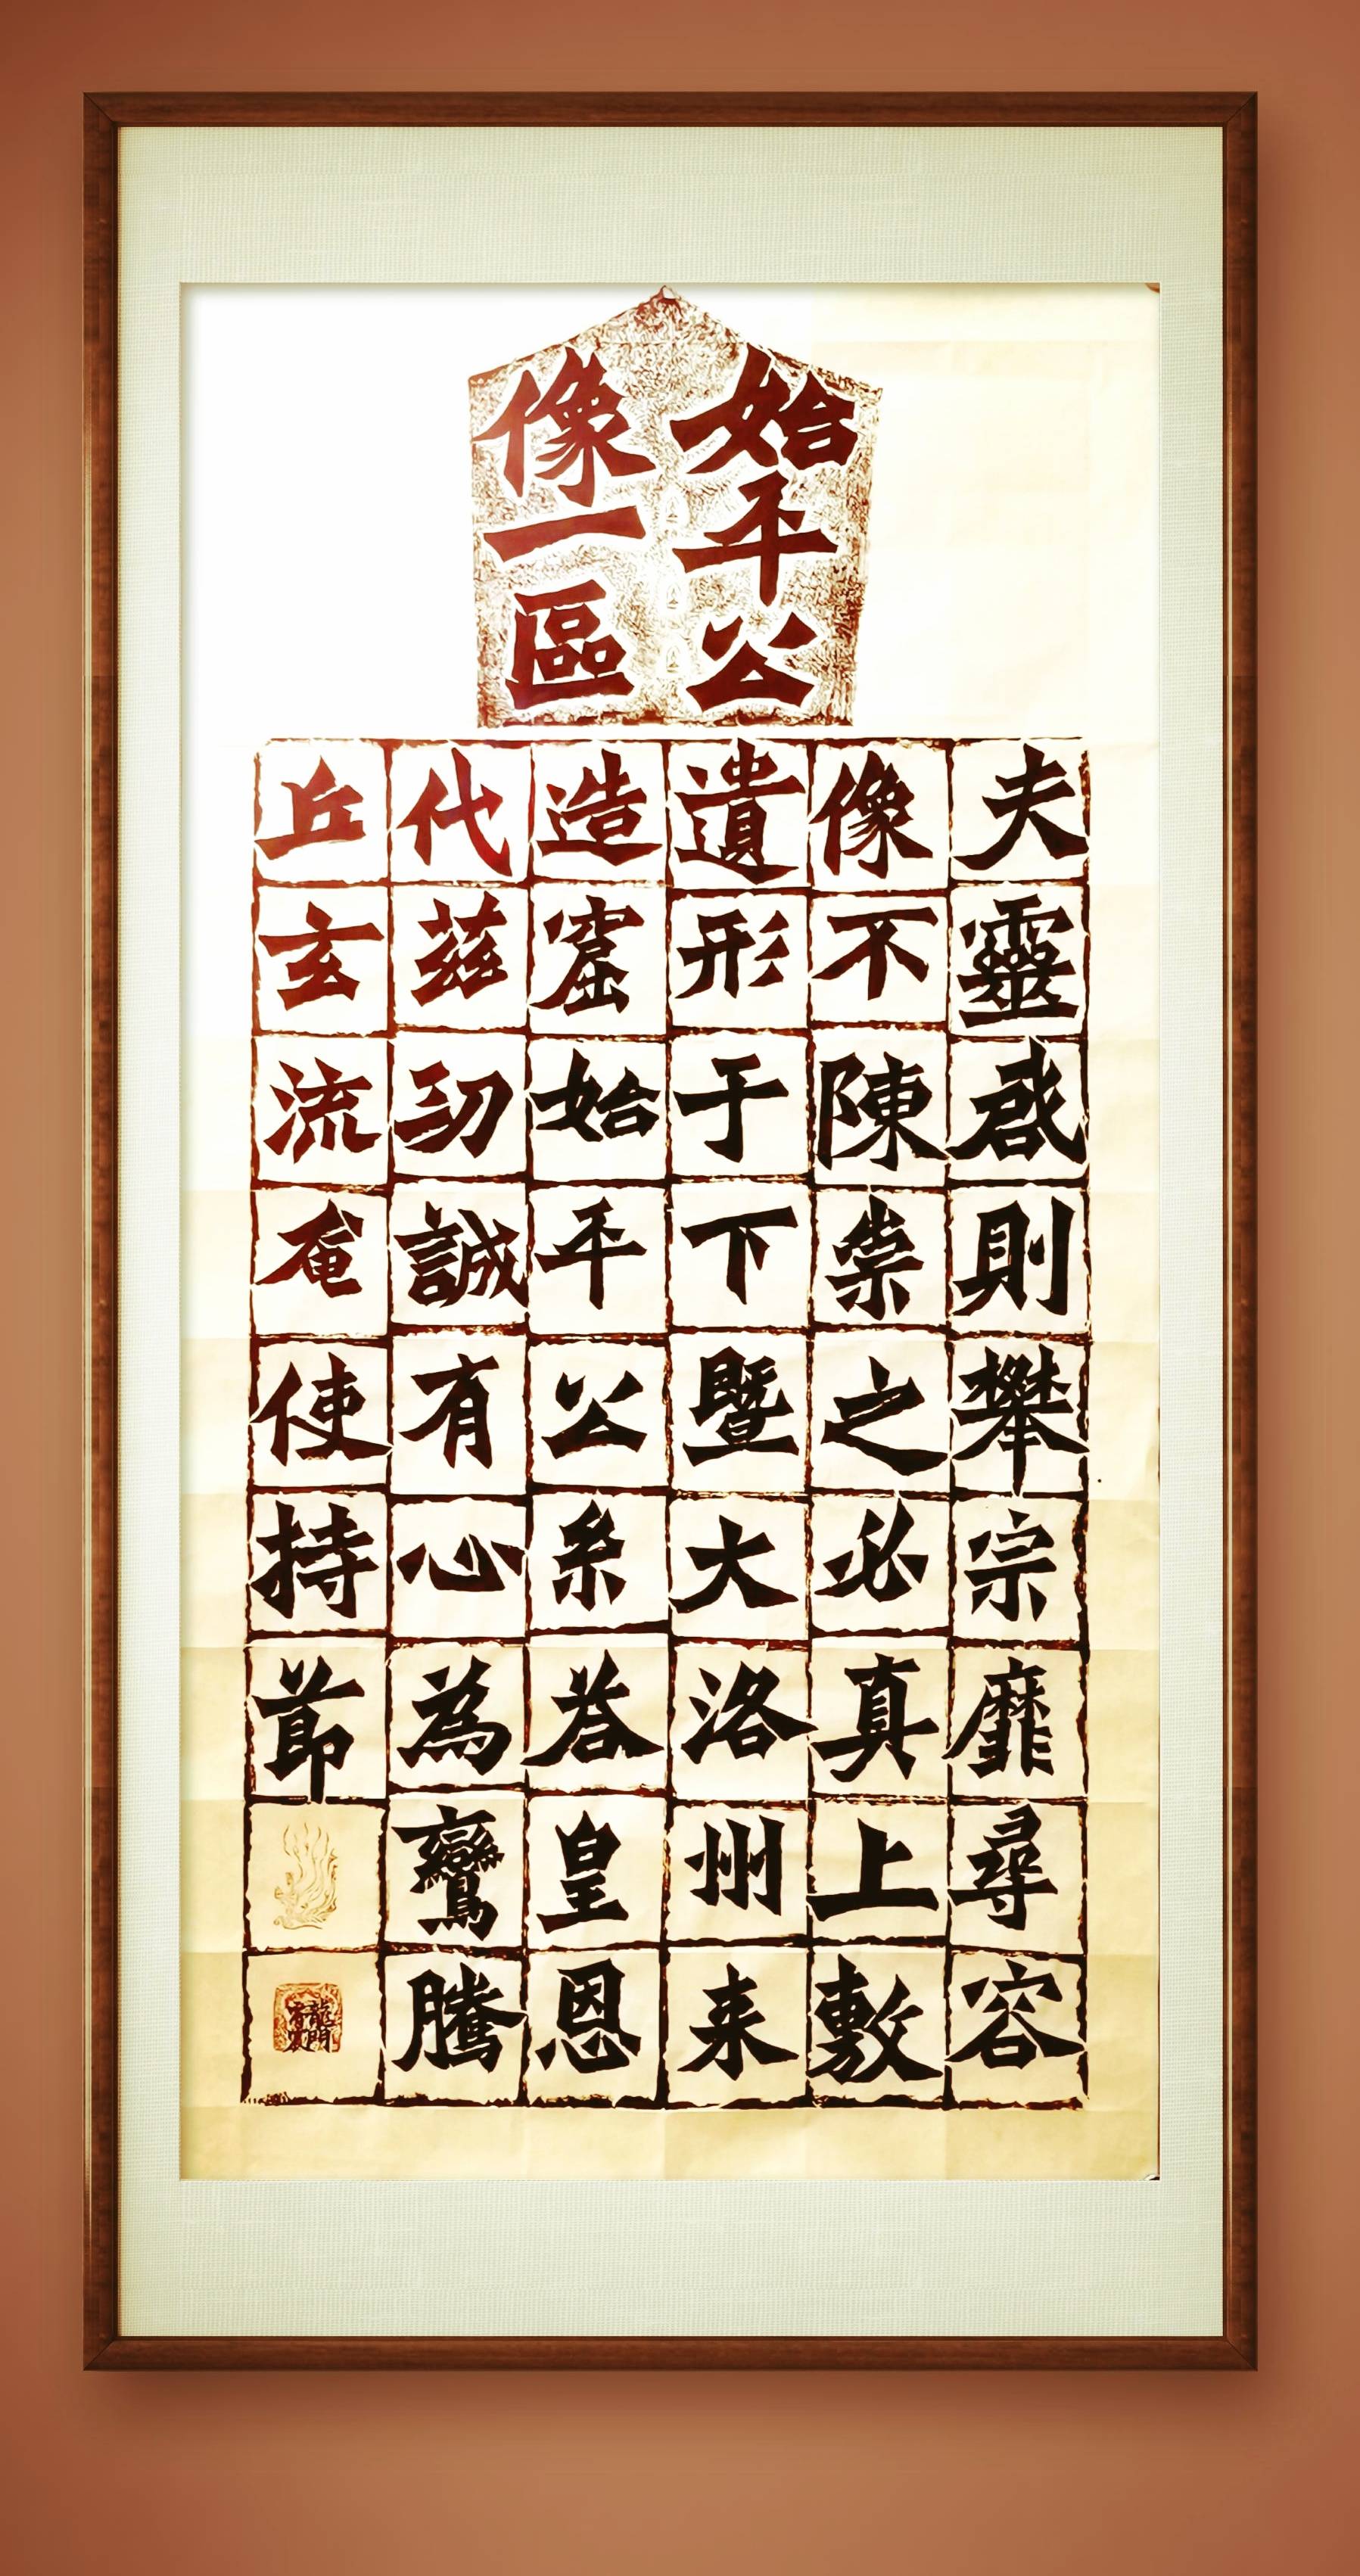 始平公
像一區
夫靈啟則攀宗靡尋容
像不陳崇之必真上敷
遺形于下暨大洛州来
造窟始平公糸荅皇恩
代茲功誠有心為鸞騰
丘玄流奄使持節